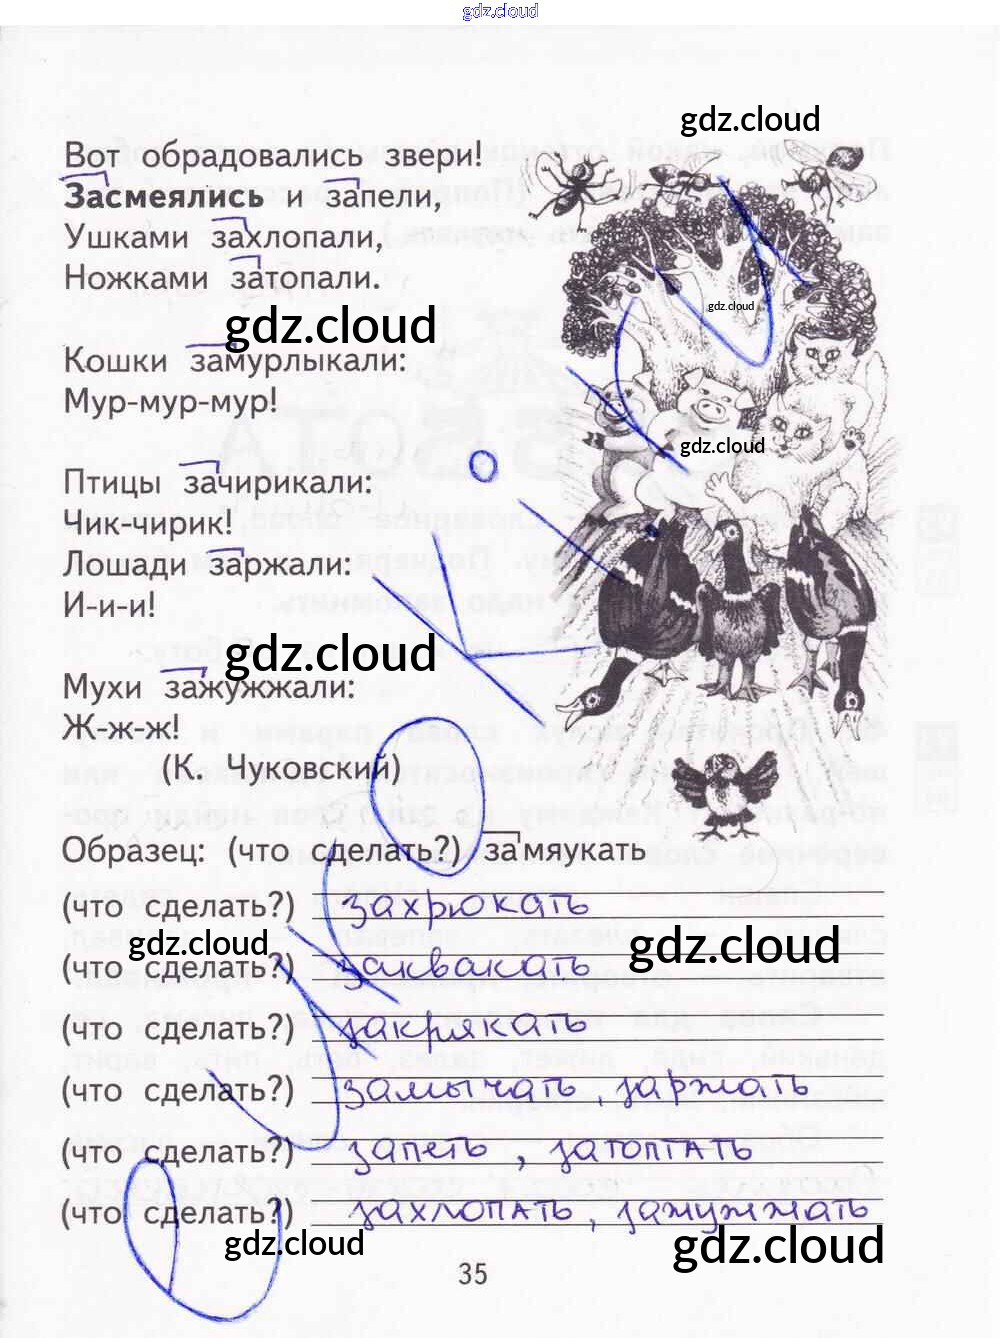 gdz.cloud
gdz.cloud
Вот обрадовались звери!
Засмеялись и запели,
Ушками захлопали,
Ножками затопали.
gdz.cloud
gdz.cloud
Кошки замурлыкали:
Мур-мур-мур!
gdz.cloud
Птицы зачирикали:
Чик-чирик!
Лошади заржали:
И-и-и!
gdz.cloud
Мухи зажужжали:
Ж-ж-ж!
(К. Чуковский)
Образец: (что сделать?) замяукать
(что сделать?) захрюкать
gdz.cloud gdz.cloud
(что сделать?) заквакать
(что сделать?) закрякать
(что сделать?) замычать, заржать
(что сделать?) запеть, затоптать
(что сделать?) захлопать, зажужжать
gdz.cloud gdz.cloud
35